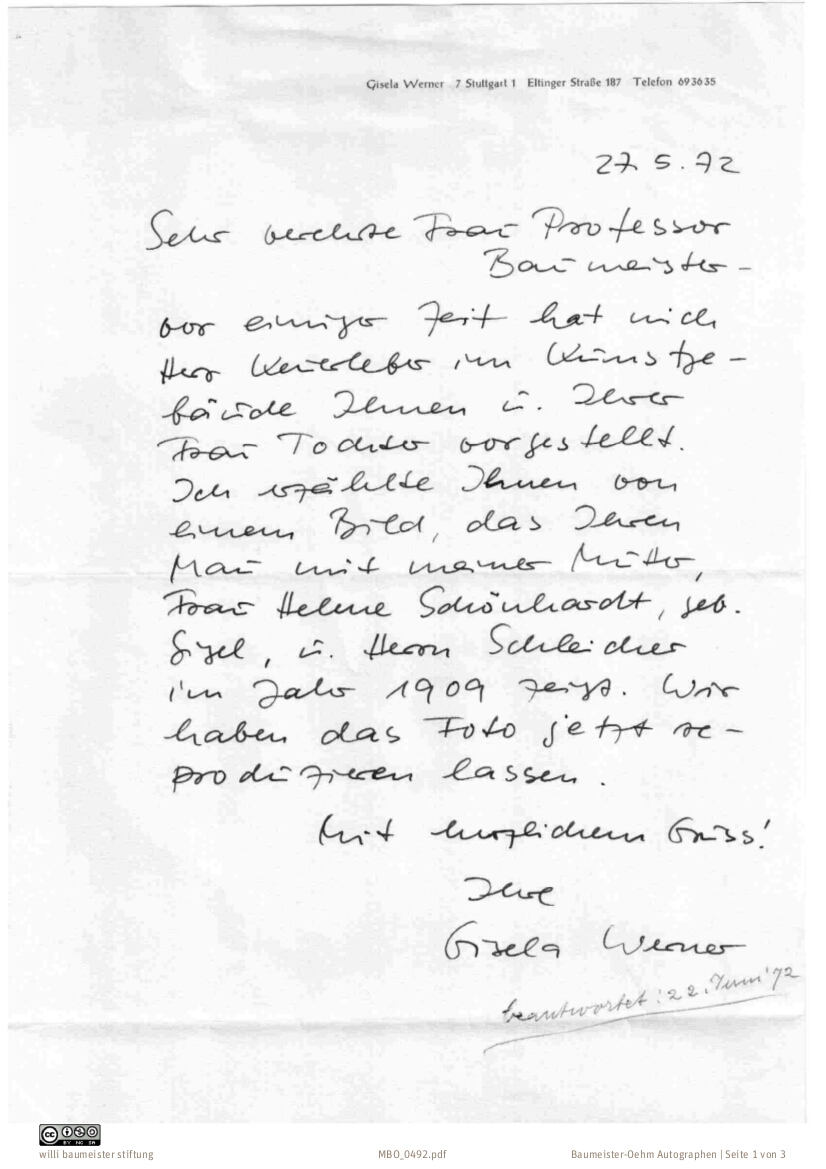 Gisela Werner 7 Stuttgart 1 Eltinger Straße 187 Telefon 693635
27.5.72
Sehr verehrte Frau Professor
Baumeister -
vor einiger Zeit hat mich
Herr Keuerleber im Kunstge-
bäude Ihnen u. Ihrer
Frau Tochter vorgestellt.
Ich erzählte Ihnen von
einem Bild, das Ihren
Mann mit meiner Mutter,
Frau Helene Schönhardt, geb.
Gizel, u. Herrn Schleicher
im Jahr 1909 zeigt. Wir
haben das Foto jetzt re-
produzieren lassen.
Mit herzlichem Gruss!
Ihre
Gisela Werner
beantwortet: 22. Juni '72
CC BY NC SA
willi baumeister stiftung
MBO_0492.pdf
Baumeister-Oehm Autographen | Seite 1 von 3